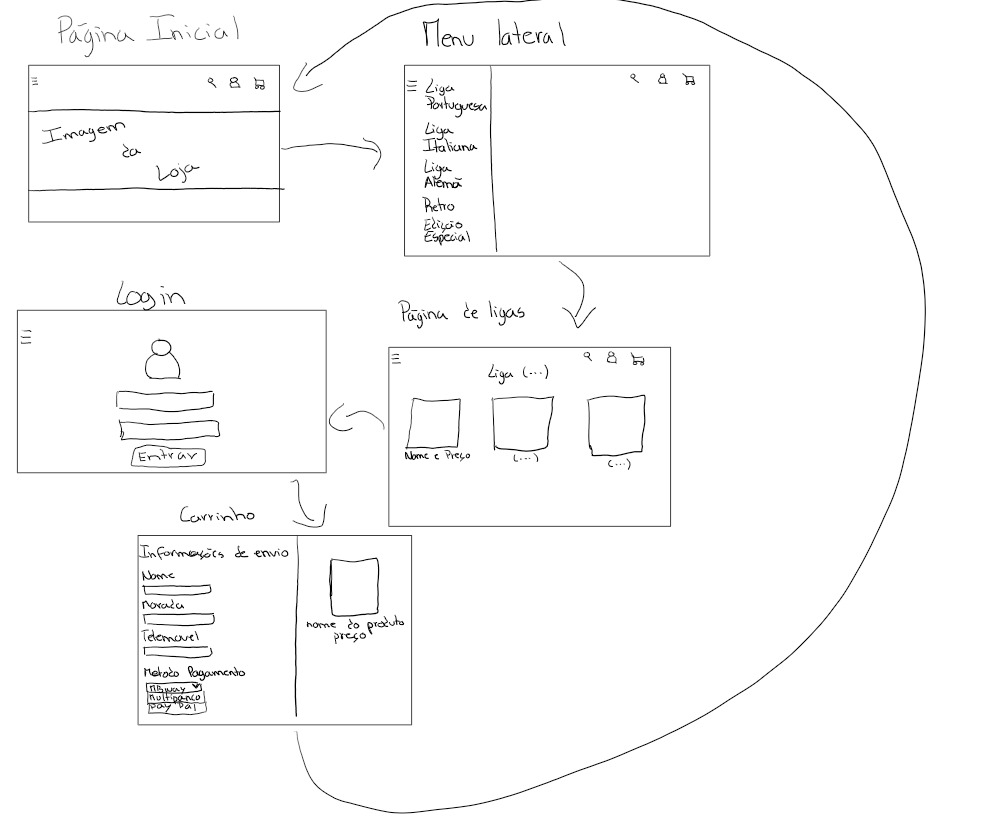 Página Inicial
Imagem
da
Loja
Menu lateral
Liga
Portuguesa
Liga
Italiana
Liga
Alemã
Retro
Edição
Especial
Página de ligas
Liga (...)
Nome e Preço
(...)
(...)
Login
Entrar
Carrinho
Informações de envio
Nome
Morada
Telemovel
Metodo Pagamento
MBway
Multibanco
Pay Pal
nome do produto
preço